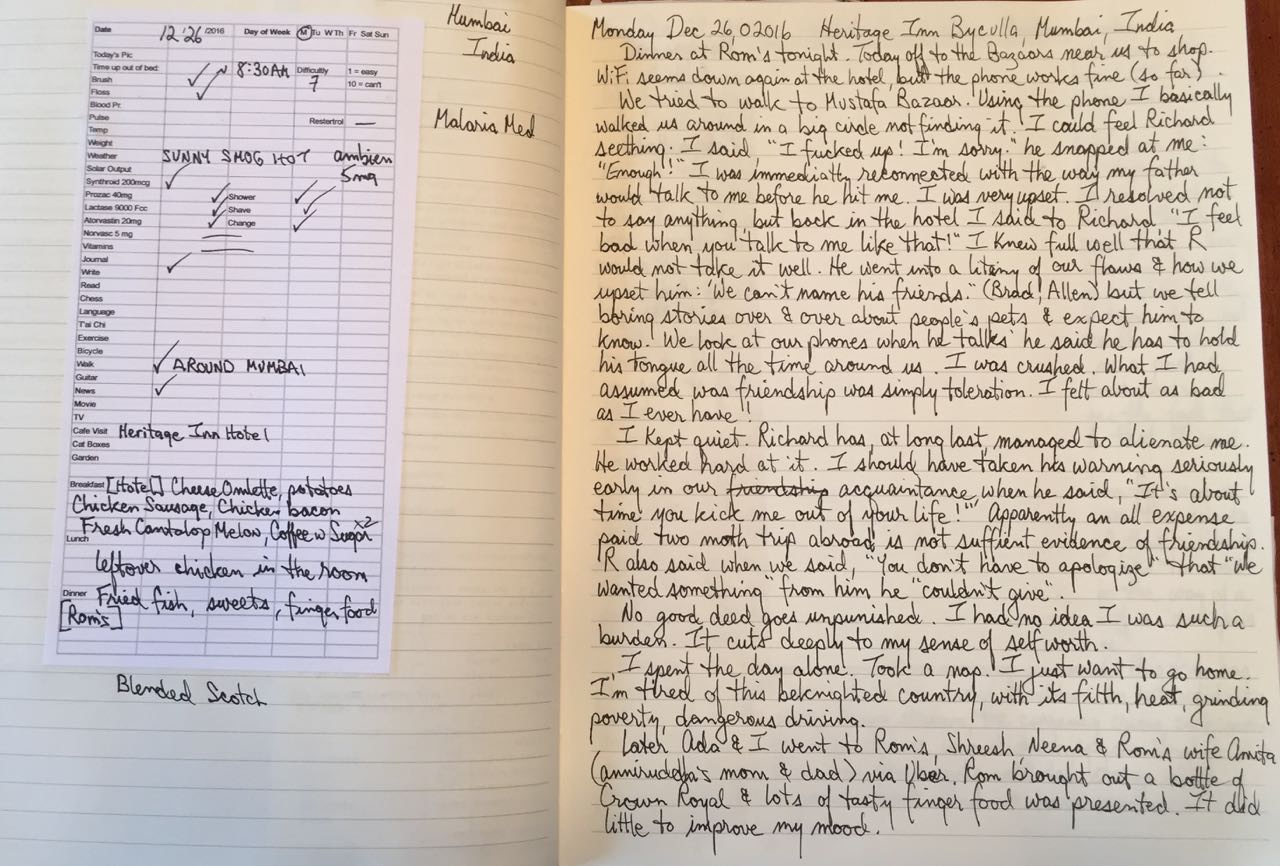 Date 12/26/2016 Day of Week M Tu W Th Fr Sat Sun
Today's Pic
Time up out of bed: 8:30AM Difficulty 1 = easy
Brush 7 10 = can't
Floss
Blood Pr.
Pulse Restertrol —
Temp
Weight
Weather SUNNY SMOG HOT ambien
Solar Output 5mg
Synthroid 200mcg
Prozac 40mg Shower
Lactase 9000 Fcc Shave
Atorvastin 20mg Change
Norvasc 5 mg
Vitamins
Journal
Write
Read
Chess
Language
T'ai Chi
Exercise
Bicycle
Walk AROUND MUMBAI
Guitar
News
Movie
TV
Cafe Visit Heritage Inn Hotel
Cat Boxes
Garden
Breakfast [Hotel] Cheese Omlette, potatoes
Chicken Sausage, Chicken bacon
Fresh Cantalop Melon, Coffee w Sugar x2
Lunch
leftover chicken in the room
Dinner Fried fish, sweets, finger food
[Rom's]
Blended Scotch
Mumbai
India
Malaria Med
Monday Dec 26, 02016 Heritage Inn Byculla, Mumbai, India
Dinner at Rom's tonight. Today off to the Bazaars near us to shop.
WiFi seems down again at the hotel, but the phone works fine (so far).
We tried to walk to Mustafa Bazaar. Using the phone I basically
walked us around in a big circle not finding it. I could feel Richard
seething. I said, "I fucked up! I'm sorry." he snapped at me:
"Enough!" I was immediatly reconnected with the way my father
would talk to me before he hit me. I was very upset. I resolved not
to say anything, but back in the hotel I said to Richard, "I feel
bad when you talk to me like that!" I Knew full well that R
would not take it well. He went into a litany of our flaws & how we
upset him: 'We can't name his friends." (Brad, Allen) but we tell
boring stories over & over about people's pets & expect him to
know. 'We look at our phones when he talks' he said he has to hold
his tongue all the time around us. I was crushed. What I had
assumed was friendship was simply toleration. I felt about as bad
as I ever have!
I Kept quiet. Richard has, at long last, managed to alienate me.
He worked hard at it. I should have taken his warning seriously
early in our friendship acquaintance when he said, "It's about
time you kick me out of your life!" Apparently an all expense
paid two moth trip abroad is not suffient evidence of friendship.
R also said when we said, "You don't have to apologize" that "we
wanted something" from him he "couldn't give".
No good deed goes unpunished. I had no idea I was such a
burden. It cuts deeply to my sense of self worth.
I spent the day alone. Took a nap. I just want to go home.
I'm tired of this beknighted country, with its filth, heat, grinding
poverty, dangerous driving.
Later Ada & I went to Rom's, Shreesh, Neena & Rom's wife Amita
(anniruddha's mom & dad) via Uber. Rom brought out a bottle of
Crown Royal & lots of tasty finger food was presented. It did
little to improve my mood.